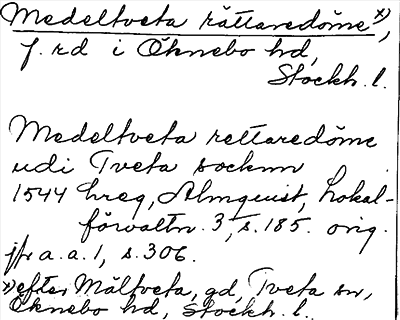 Medeltveta rättaredöme x),
f. rd i Öknebo hd,
Stockh. l.
Medeltveta rettaredöme
udi Tveta socknn
1544 hreg, Almquist, Lokal-
förvaltn. 3, s. 185. orig.
jfr a.a. 1, s. 306.
x) efter Mältveta, gd, Tveta sn,
Öknebo hd, Stockh. l..